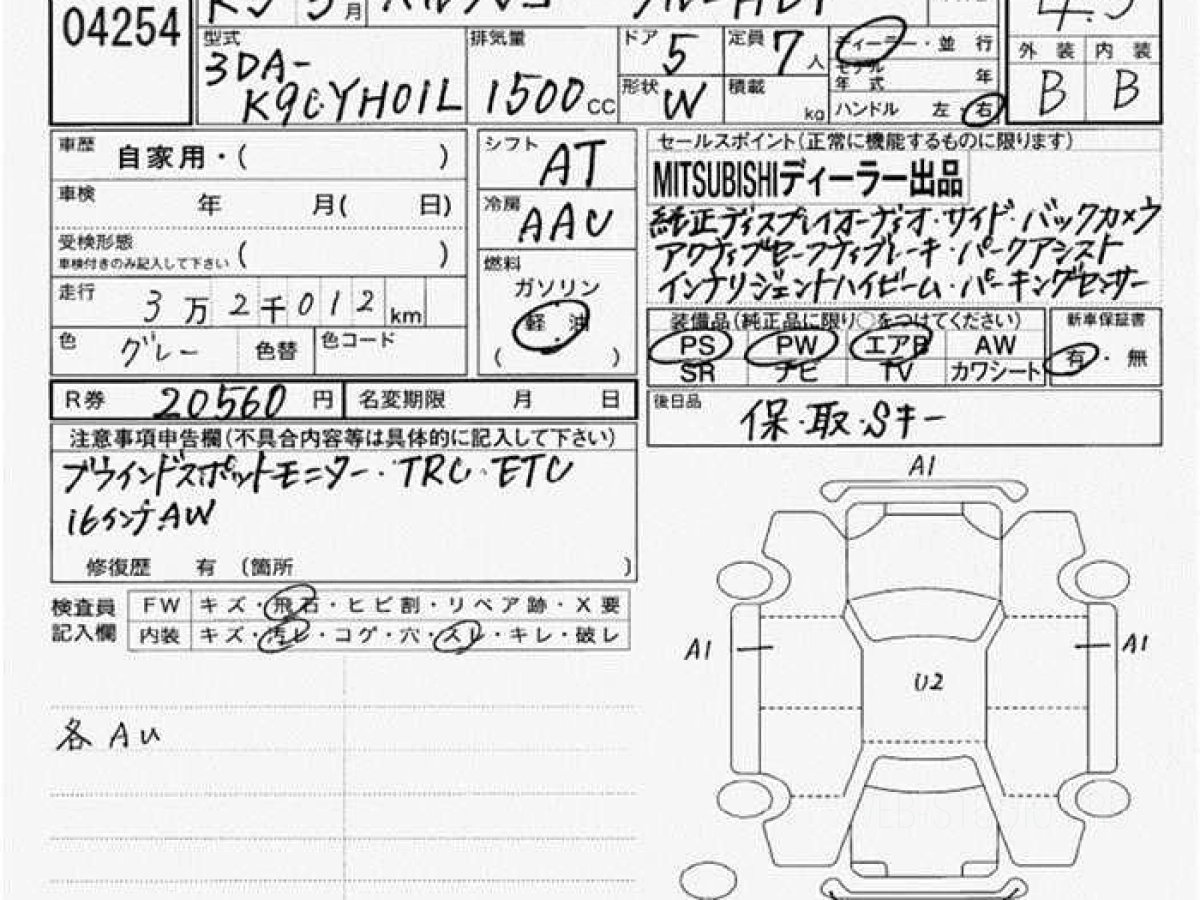 04254
R5
5 月
型式
3DA-
K9CYH01L
排気量
1500 CC
ドア
5
定員
7 人
形状
W
積載
kg
ディーラー・並 行
モデル
年 式
年
ハンドル 左・右
4.5
外 装 内 装
B B
車歴
自家用・( )
車検
年 月( 日)
受検形態
車検付きのみ記入して下さい ( )
走行
3 万 2 千 0 1 2 km
色
グレー
色替
色コード
シフト
AT
冷房
AAC
燃料
ガソリン
軽 油
( )
セールスポイント(正常に機能するものに限ります)
MITSUBISHIディーラー出品
純正ディスプレイオーディオ・サイド・バックカメラ
アクティブセーフティブレーキ・パークアシスト
インテリジェントハイビーム・パーキングセンサー
装備品(純正品に限り○をつけてください)
PS PW エアB AW
SR ナビ TV カワシート
新車保証書
有・無
R券
20560 円
名変期限 月 日
後日品
保・取・Sキー
注意事項申告欄(不具合内容等は具体的に記入して下さい)
ブラインドスポットモニター・TRC・ETC
16インチAW
修復歴 有 (箇所 )
検査員
記入欄
FW キズ・飛石・ヒビ割・リペア跡・X要
内装 キズ・汚レ・コゲ・穴・スレ・キレ・破レ
各AU
A1
A1
A1
U2